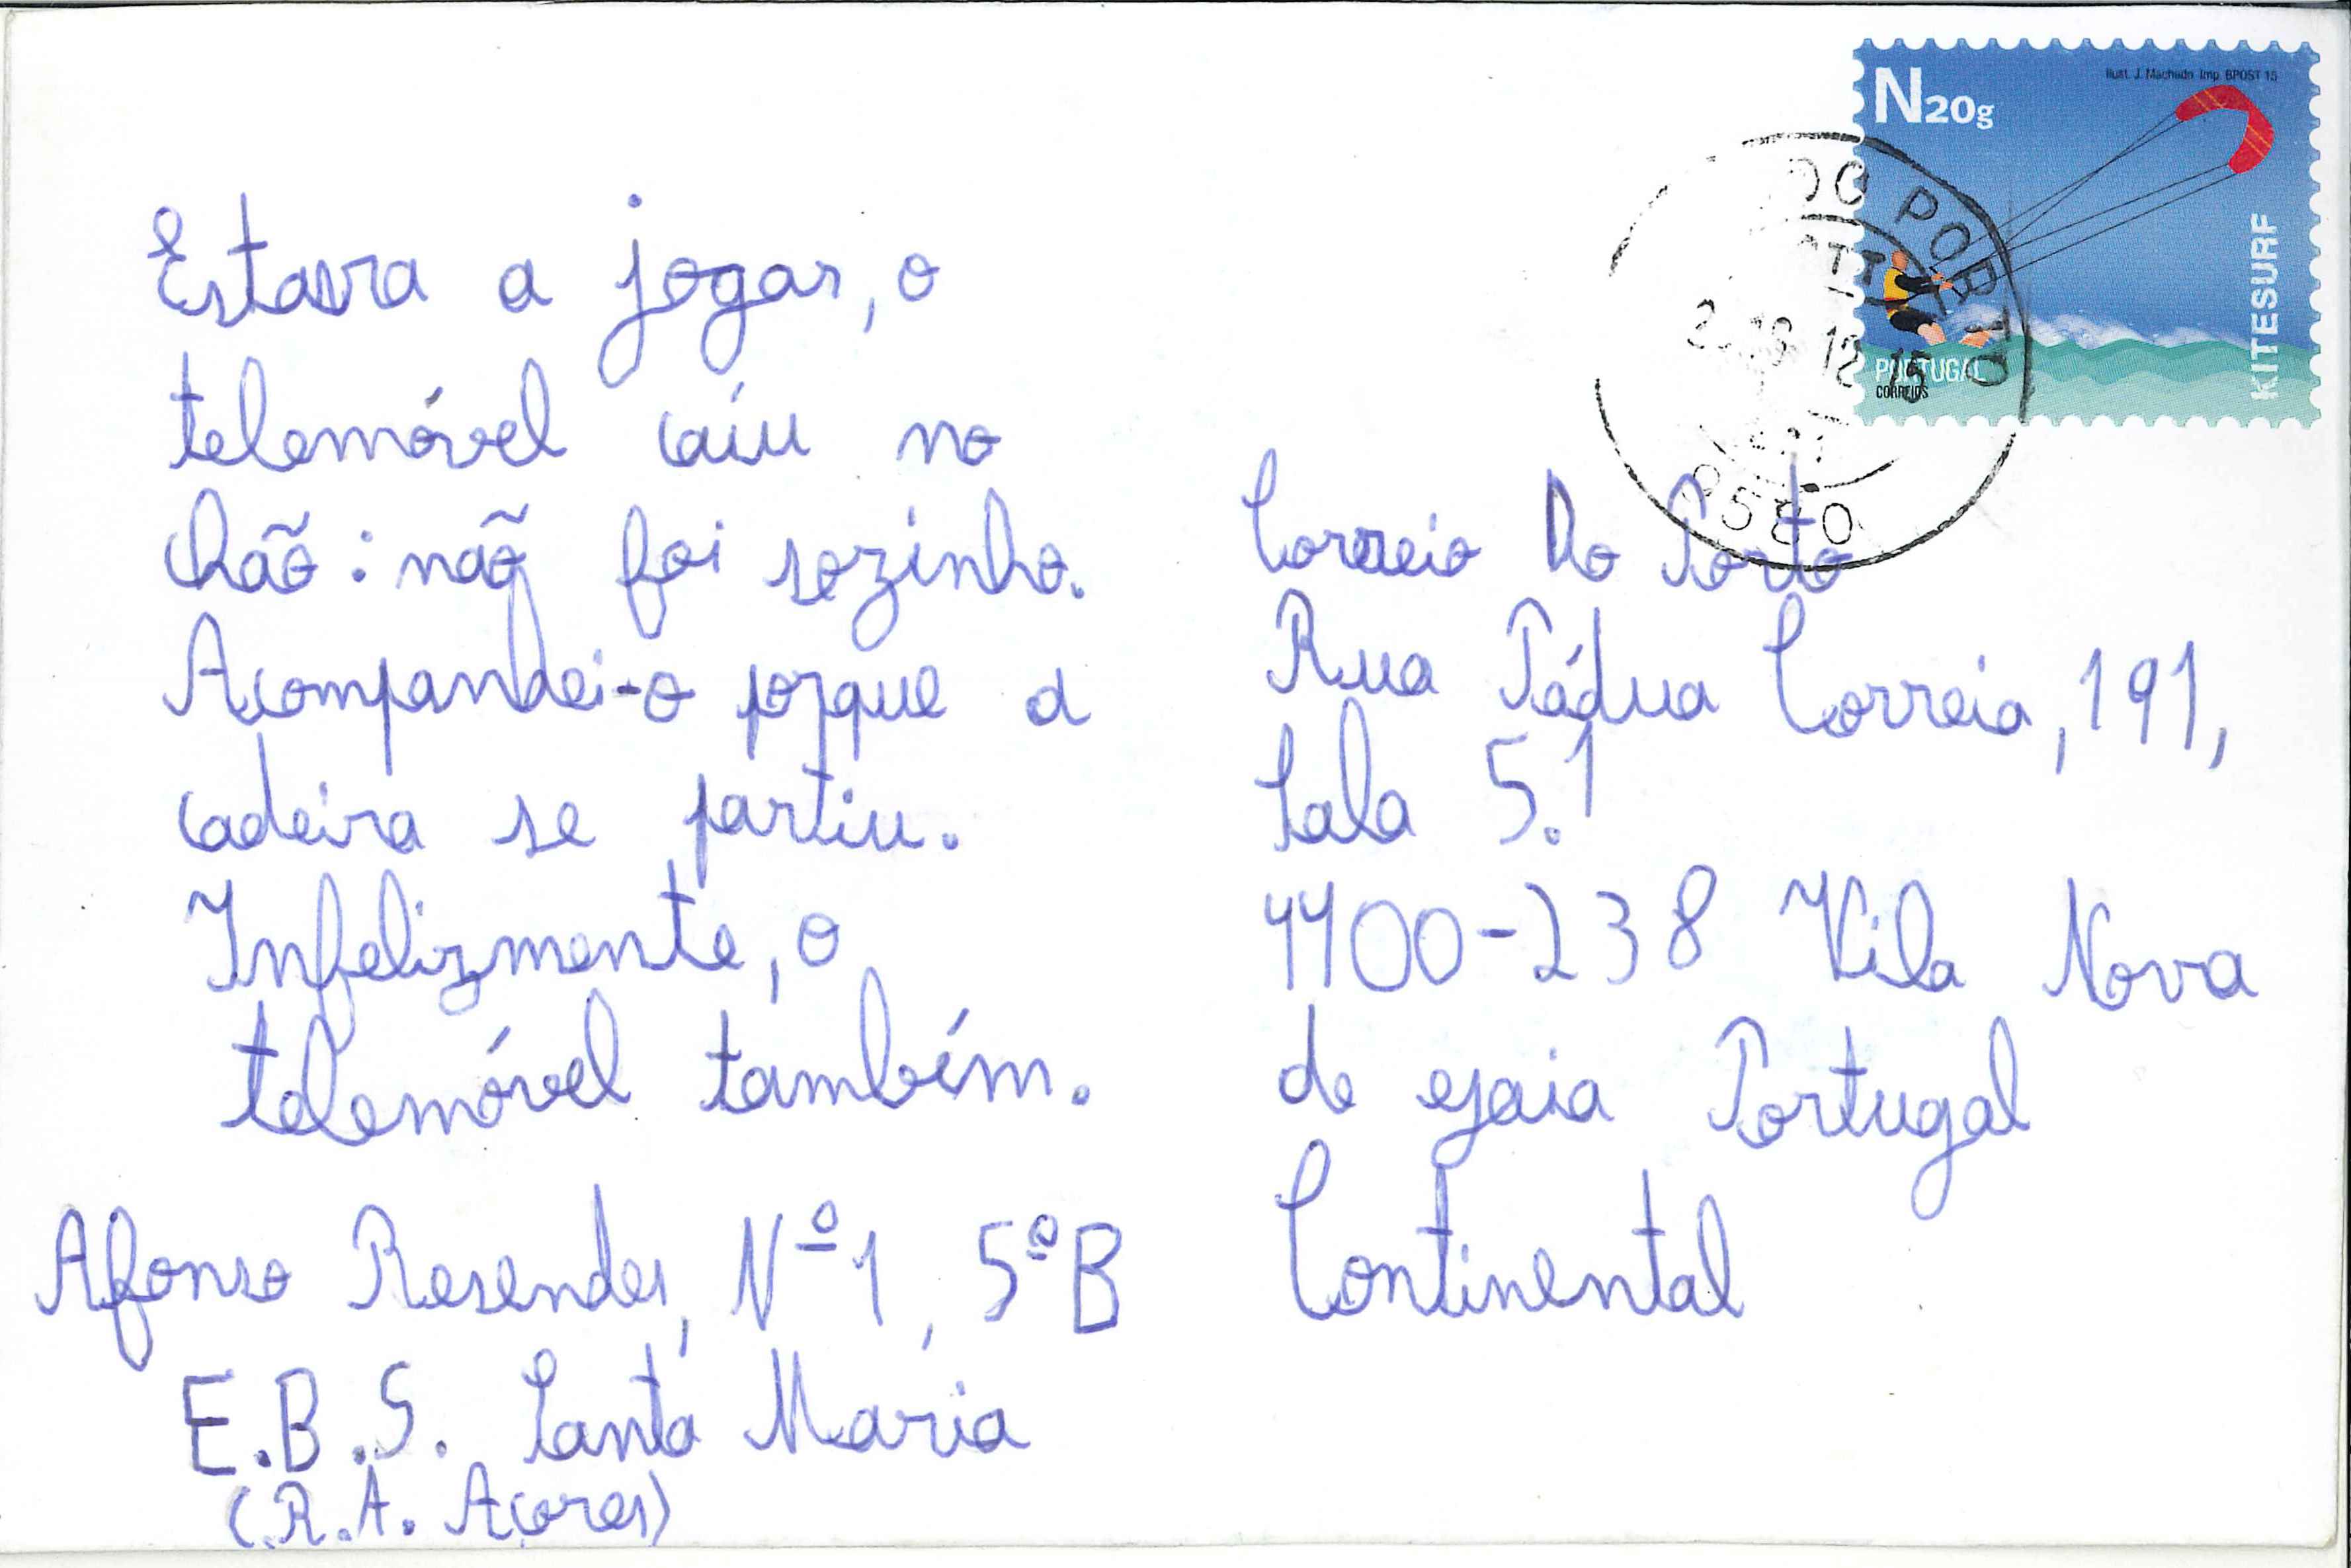 Estava a jogar, o
telemóvel caiu no
chão: não foi sozinho.
Acompanhei-o porque a
cadeira se partiu.
Infelizmente, o
telemóvel também.
Afonso Resendes, Nº 1, 5º B
E.B.S. Santa Maria
(R.A. Açores)
N20g
Ilust. J. Machado Imp. BPOST 15
KITESURF
PORTUGAL
CORREIOS
DO PORTO
CTT
12 15
9580
Correio Do Porto
Rua Pádua Correia, 191,
Sala 5.1
4400-238 Vila Nova
de Gaia Portugal
Continental